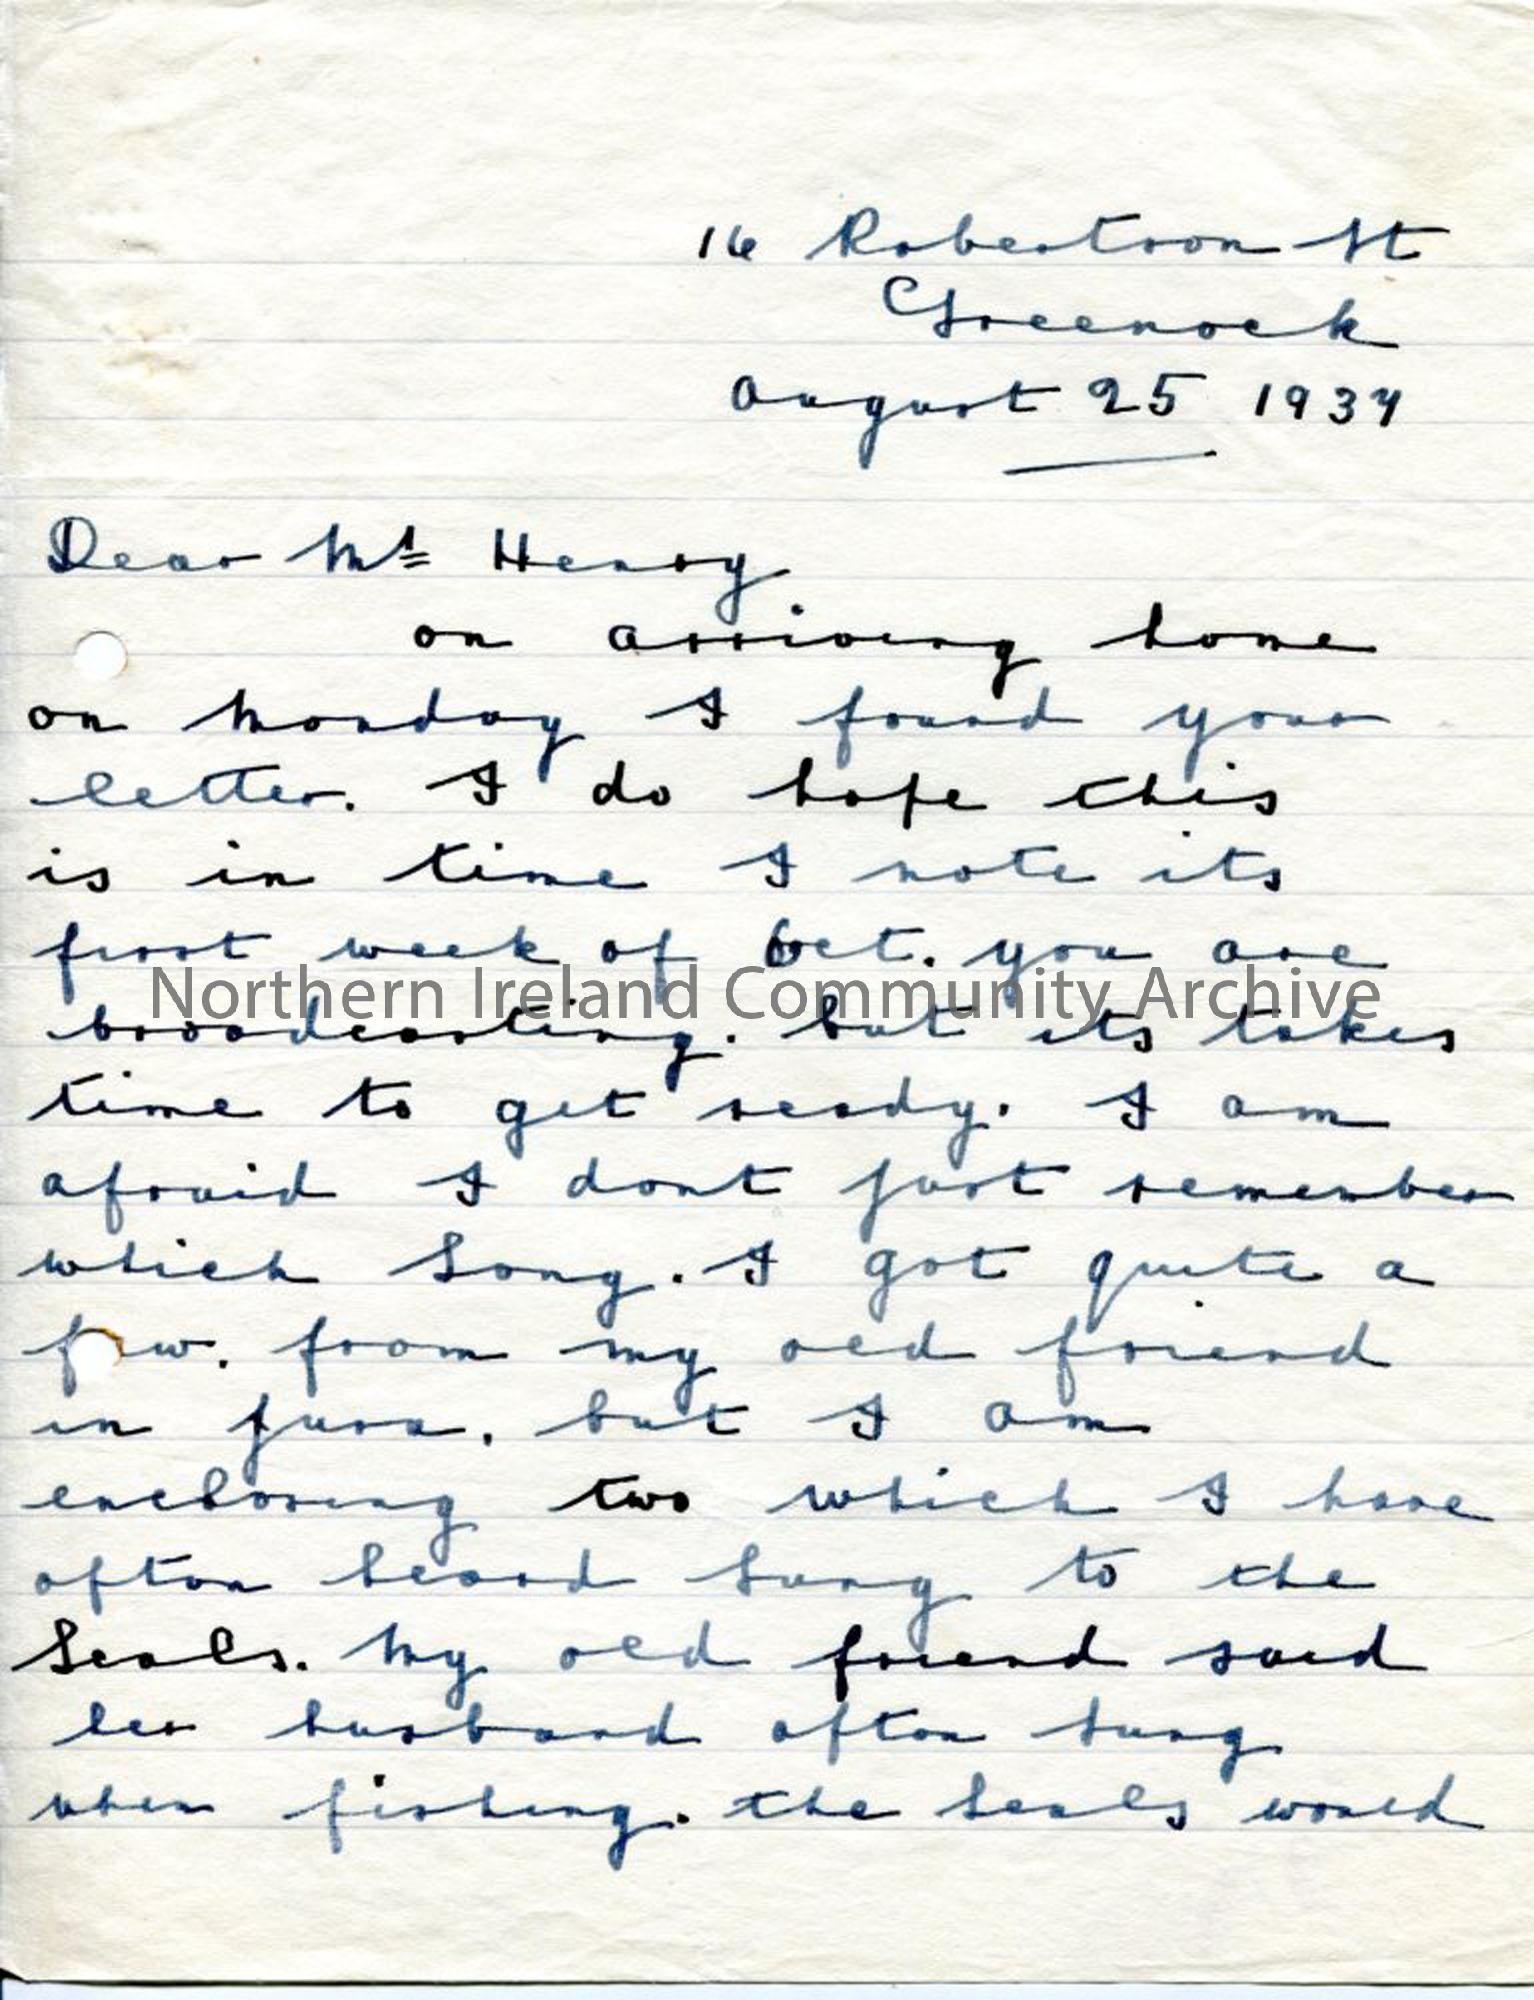 16 Robertson St
Greenock
August 25 1937
Dear Mr Henry
on arriving home
on Monday I found your
letter. I do hope this
is in time I note its
first week of Oct. you are
Northern Ireland Community Archive
broadcasting. but its takes
time to get ready. I am
afraid I dont just remember
which Song. I got quite a
few. from my old friend
in Jura. but I am
enclosing two which I have
often heard Sung to the
Seals. My old friend said
her husband often sung
when fishing. the Seals would